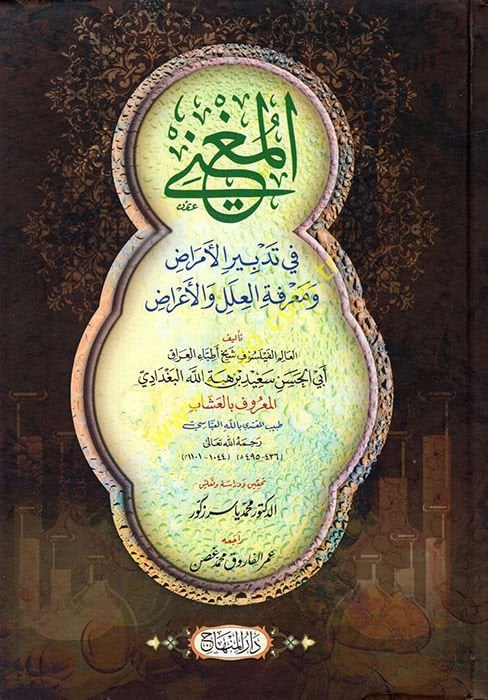 المغني
في تدبير الأمراض
ومعرفة العلل والأعراض
تأليف
العالم الفيلسوف شيخ أطباء العراق
أبي الحسن سعيد بن هبة الله البغدادي
المعروف بالعشاب
طبيب المقتدي بالله العباسي
رحمه الله تعالى
(٤٣٦-٤٩٥ه) (١٠٤٤-١١٠١م)
تحقيق ودراسة وتعليق
الدكتور محمد ياسر زكور
راجعه
عمر الفاروق محمد غصن
دار المنهاج